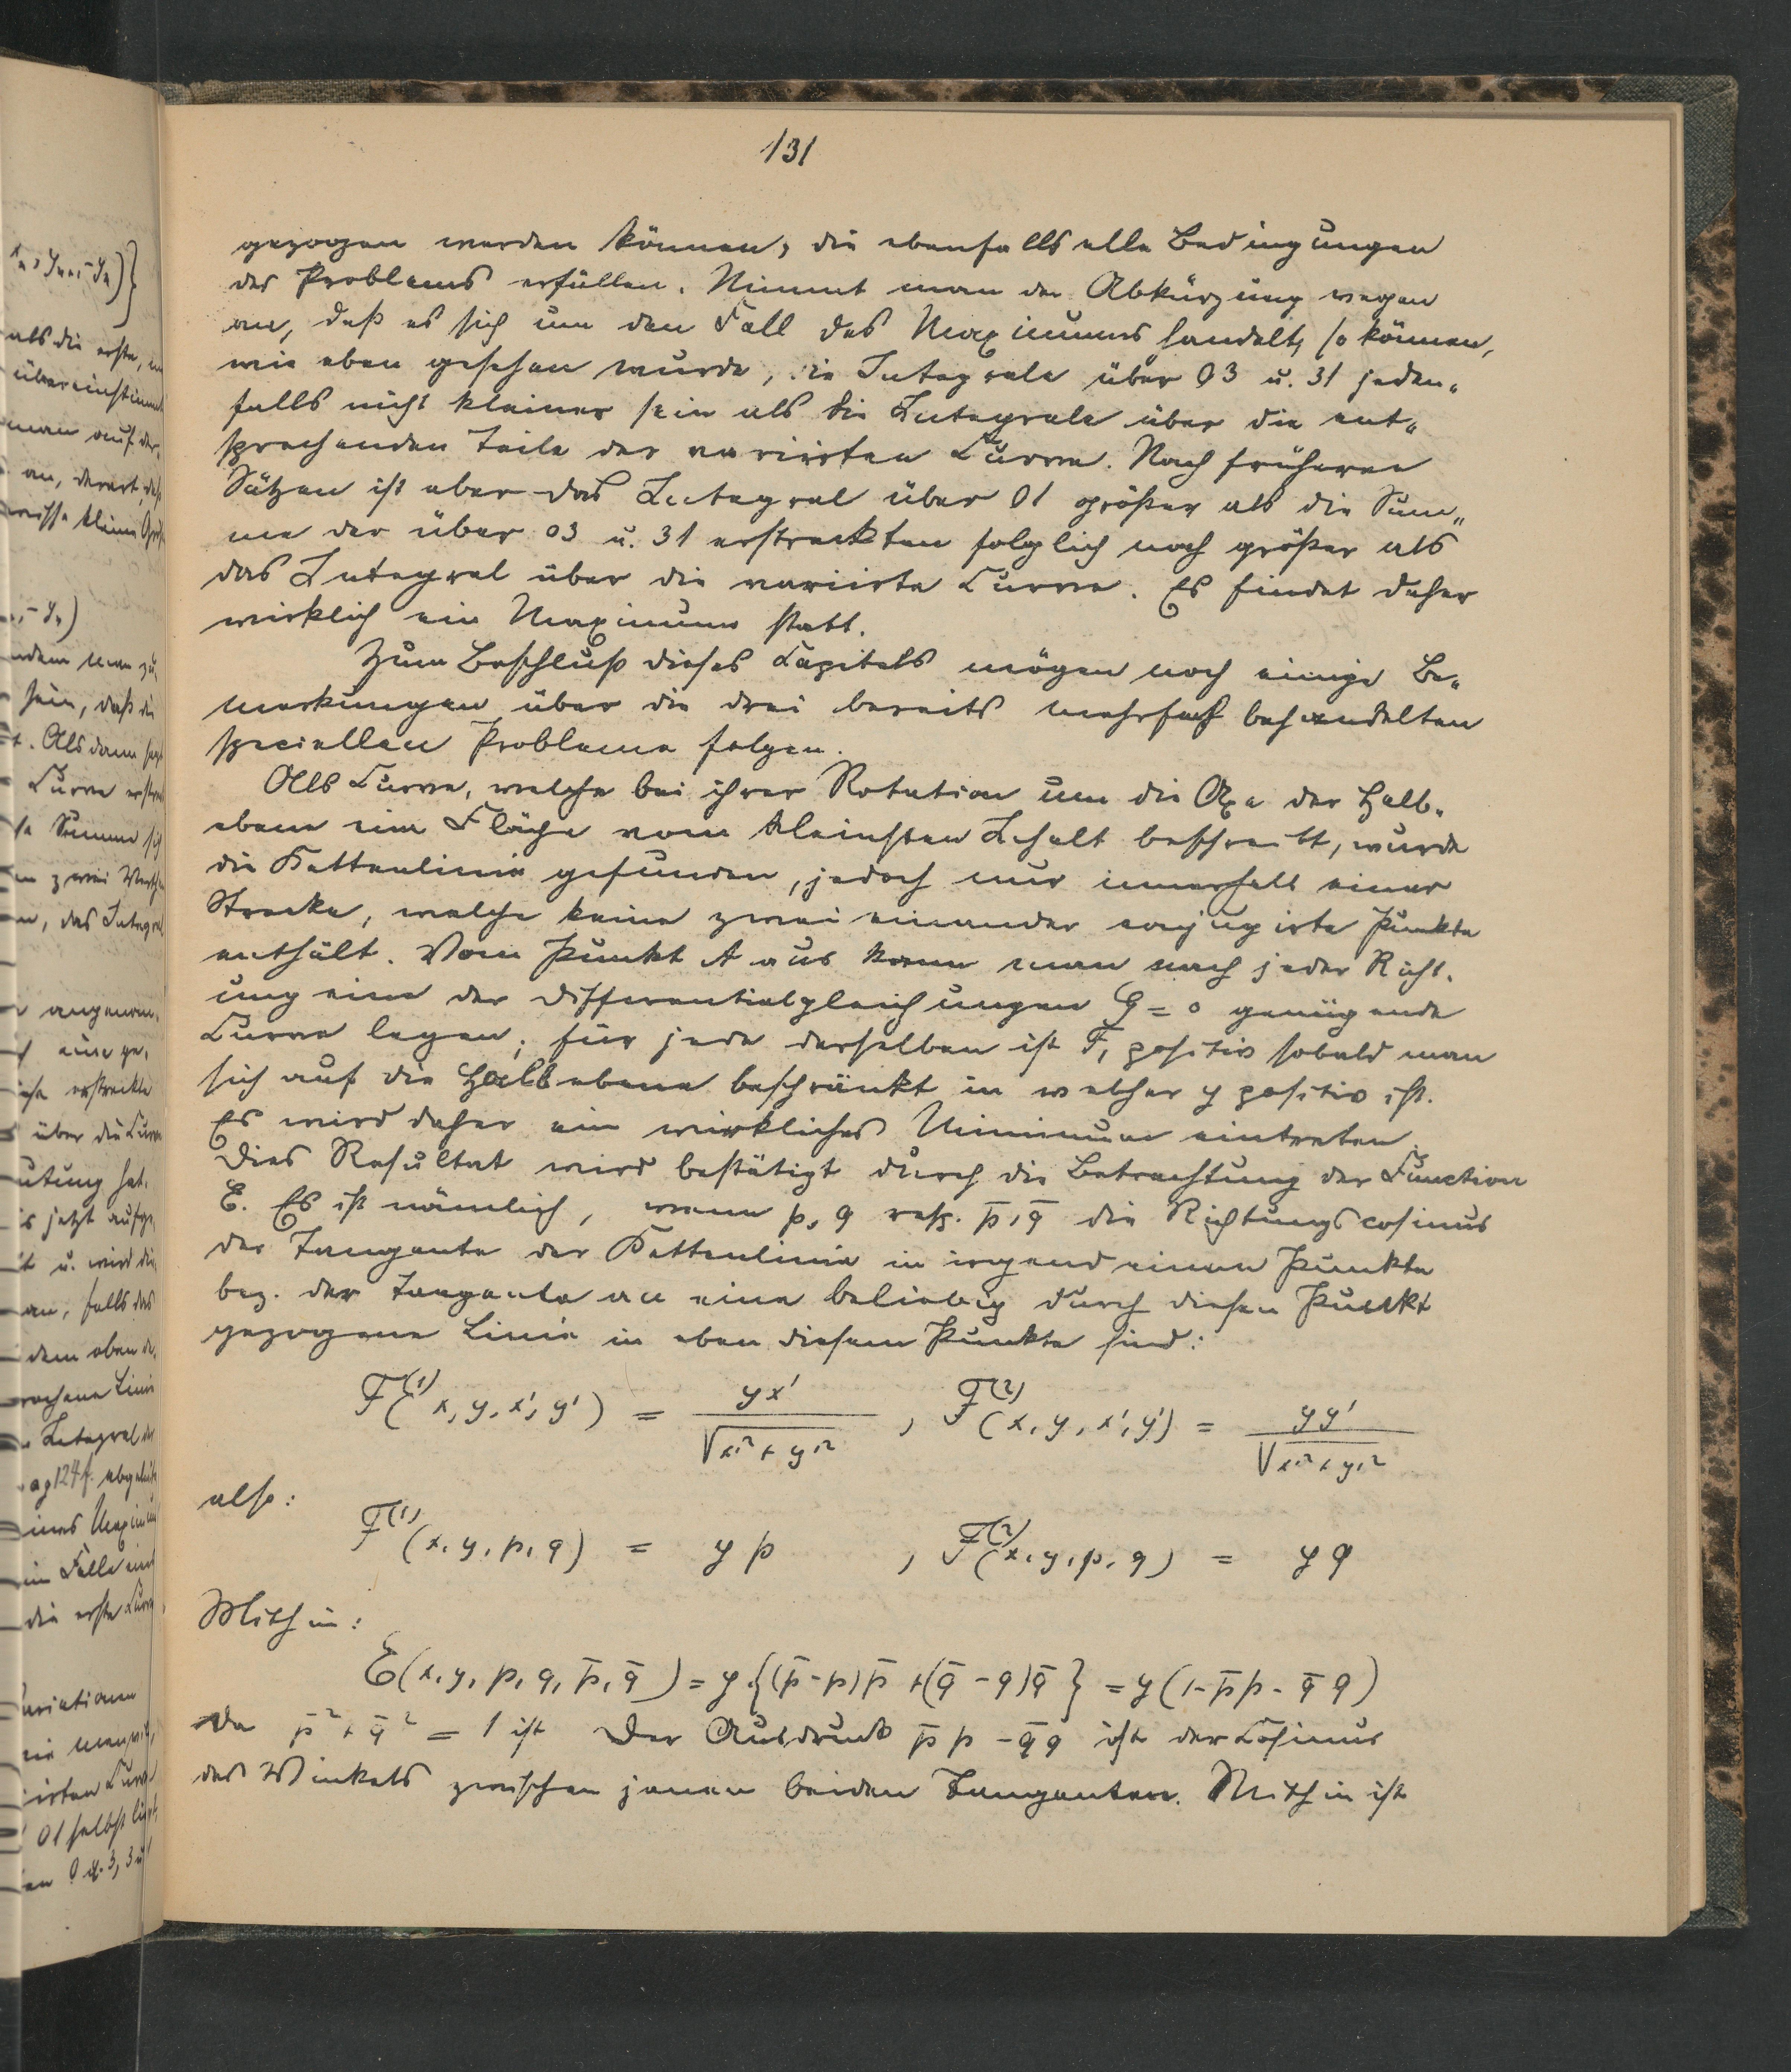 131
gezogen werden können, die ebenfalls alle Bedingungen
des Problems erfüllen. Nimmt man der Abkürzung wegen
an, daß es sich um den Fall des Maximums handelt, so können,
wie eben gesehen wurde, die Integrale über 03 u. 31 jeden„
falls nicht kleiner sein als die Integrale über die ent„
sprechenden Teile der variirten Curve. Nach früheren
Sätzen ist aber das Integral über 01 größer als die Sum„
me der über 03 u. 31 erstreckten folglich noch größer als
das Integral über die variirte Curve. Es findet daher
wirklich ein Maximum statt.
Zum Beschluß dieses Capitels mögen noch einige Be„
merkungen über die drei bereits mehrfach behandelten
speciellen Probleme folgen.
Als Curve, welche bei ihrer Rotation um die Axe der Halb„
ebene eine Fläche vom kleinsten Inhalt beschreibt, wurde
die Kettenlinie gefunden, jedoch nur innerhalb einer
Strecke, welche keine zwei einander conjugirte Punkte
enthält. Vom Punkt A aus kann man nach jeder Richt„
ung eine der Differentialgleichungen G = 0 genügende
Curve legen; für jede derselben ist F₁ positiv sobald man
sich auf die Halbebene beschränkt in welcher y positiv ist.
Es wird daher ein wirkliches Minimum eintreten.
Dies Resultat wird bestätigt durch die Betrachtung der Function
E. Es ist nämlich, wenn p, q resp. p̄, q̄ die Richtungscosinus
der Tangente der Kettenlinie in irgend einem Punkte
bez. der Tangente an eine beliebig durch diesen Punkt
gezogene Linie in eben diesem Punkte sind:
F⁽¹⁾(x, y, x', y') = yx' / √x'² + y'² , F⁽²⁾(x, y, x', y') = yy' / √x'² + y'²
also:
F⁽¹⁾(x, y, p, q) = y p , F⁽²⁾(x, y, p, q) = y q
Mithin:
E(x, y, p, q, p̄, q̄) = y {(p̄ - p) p̄ + (q̄ - q) q̄} = y (1 - p̄ p - q̄ q)
Da p̄² + q̄² = 1 ist Der Ausdruck p̄ p - q̄ q ist der Cosinus
des Winkels zwischen jenen beiden Tangenten. Mithin ist